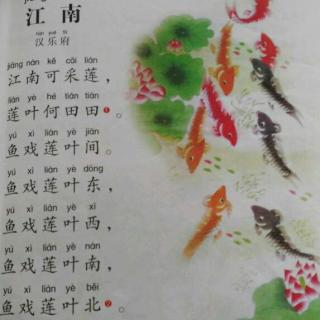 江南
hàn yuè fǔ
汉乐府
jiāng nán kě cǎi lián
江南可采莲，
lián yè hé tián tián
莲叶何田田❶。
yú xì lián yè jiān
鱼戏莲叶间。
yú xì lián yè dōng
鱼戏莲叶东，
yú xì lián yè xī
鱼戏莲叶西，
yú xì lián yè nán
鱼戏莲叶南，
yú xì lián yè běi
鱼戏莲叶北❷。